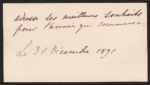 adresse ses meilleurs souhaits
pour l'année qui commence.
Le 31 Décembre 1891